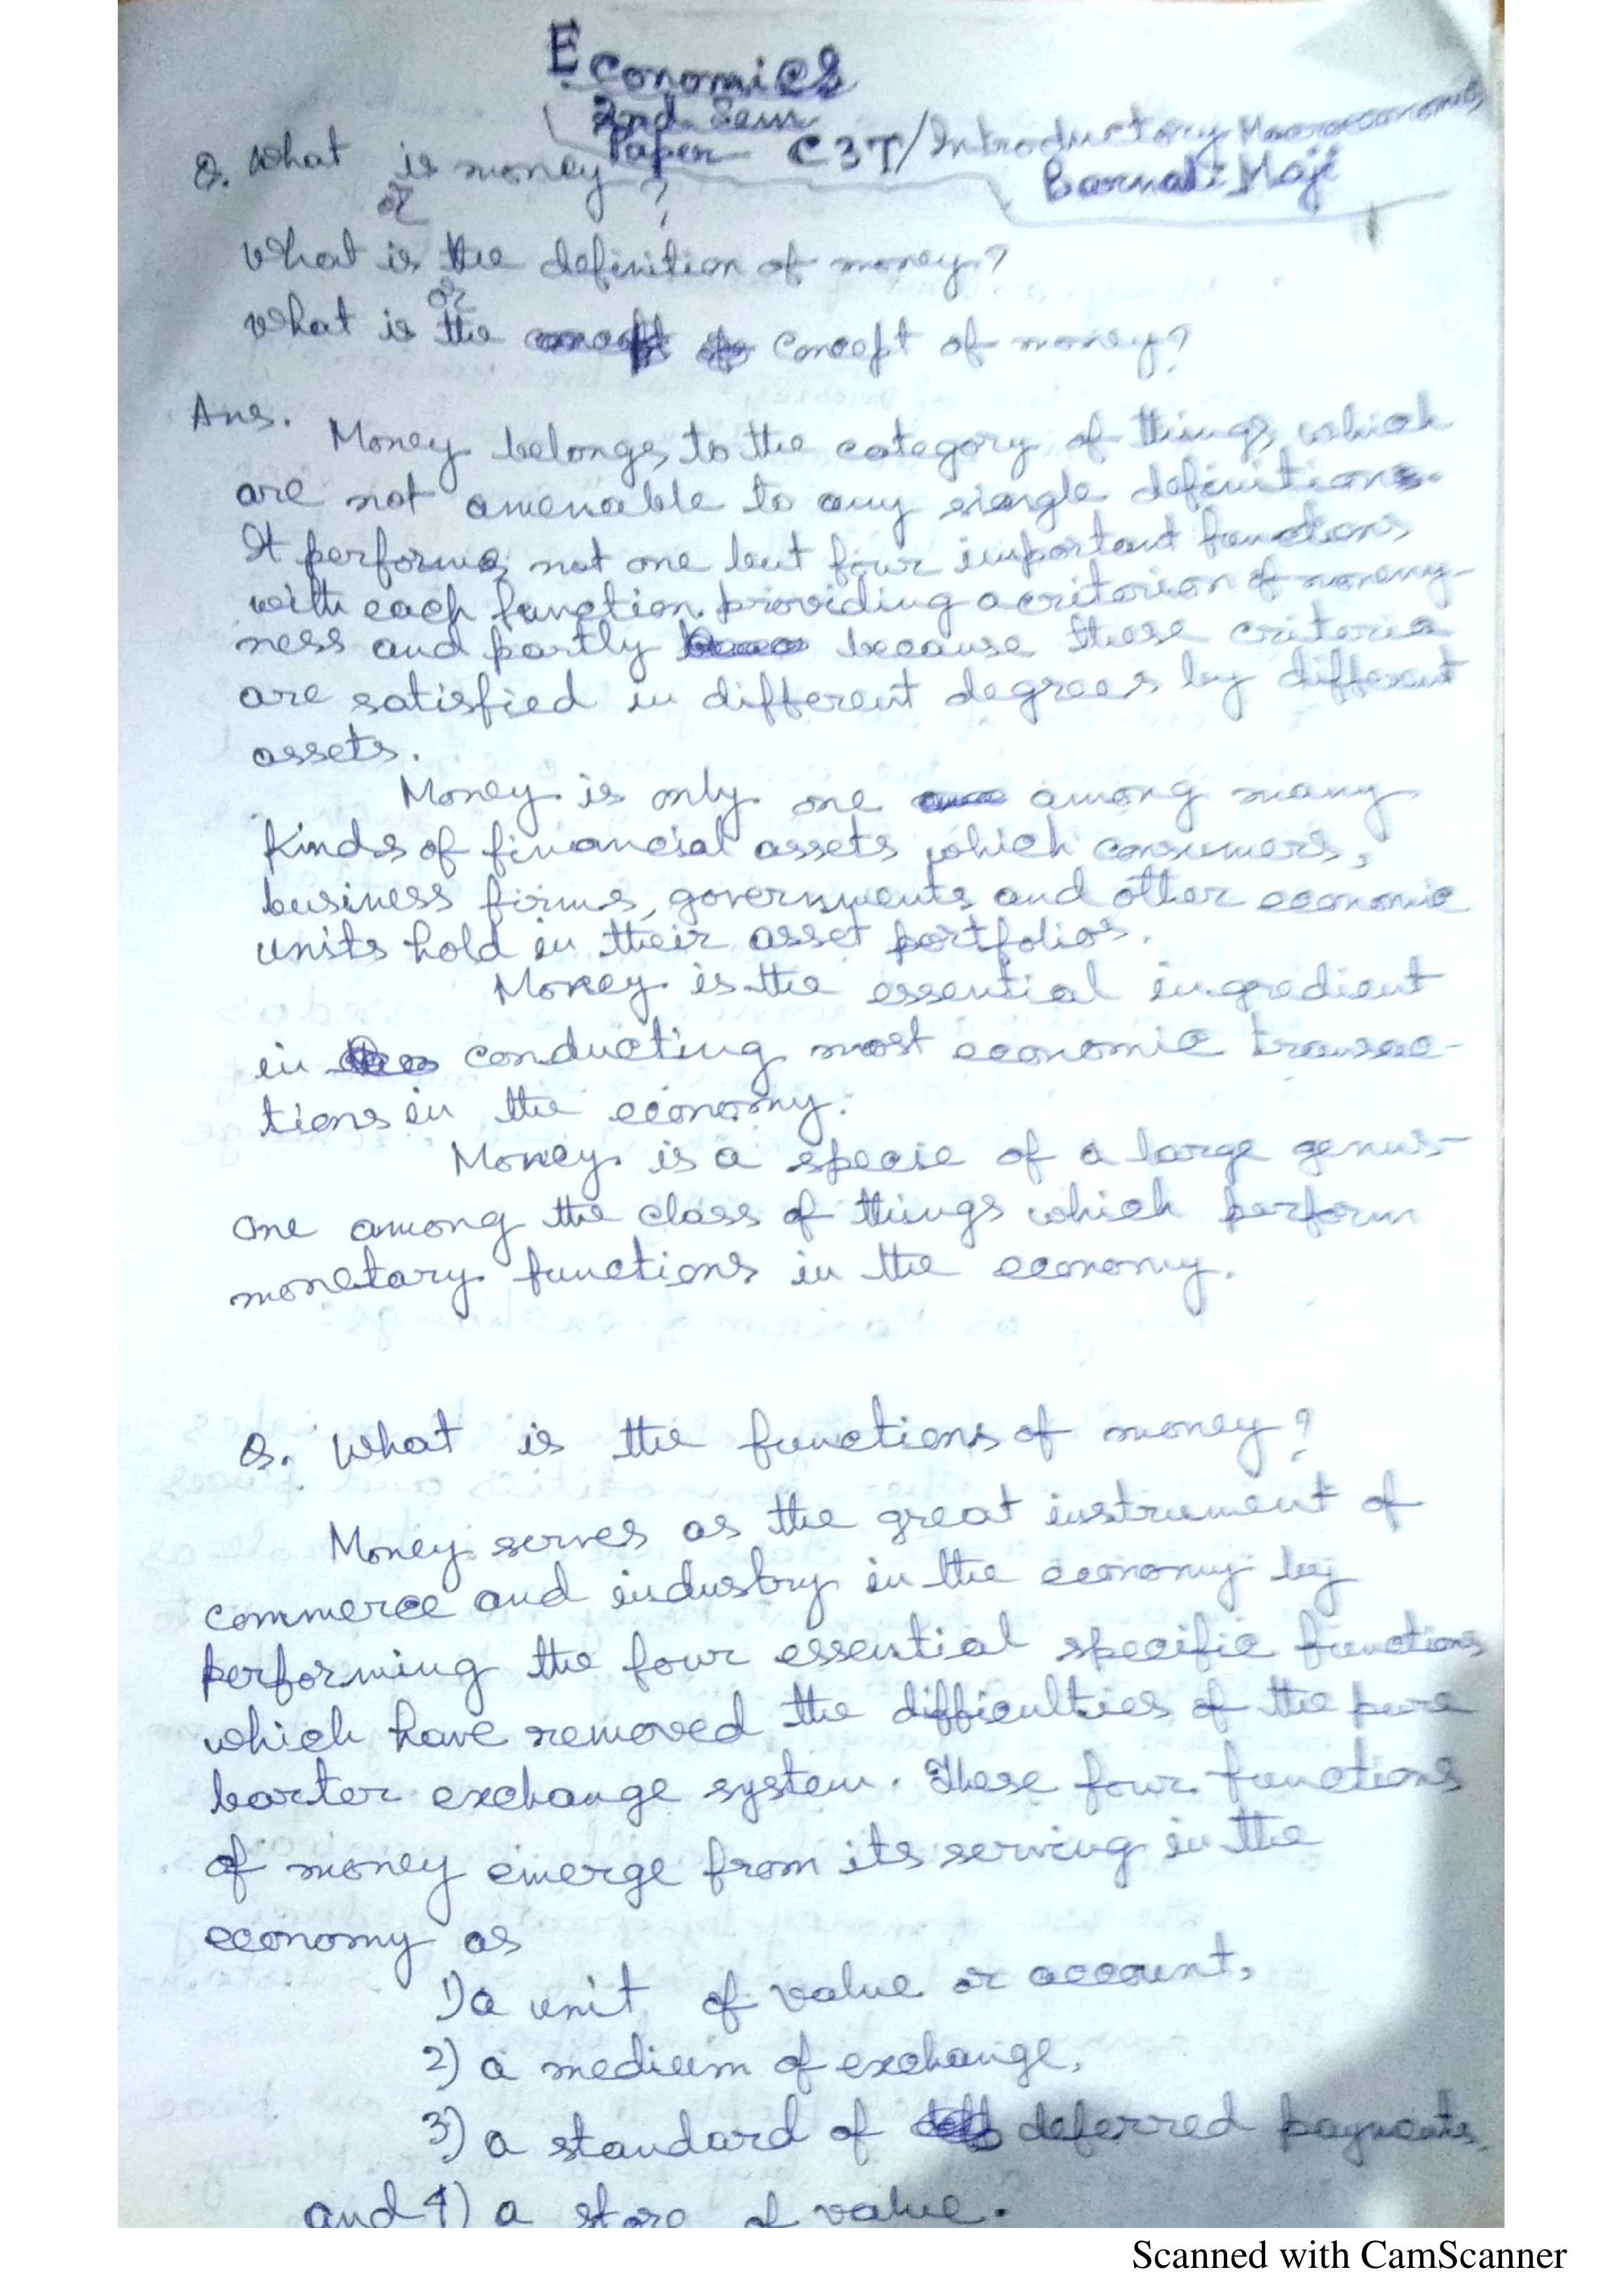 Economics
2nd Sem
Paper C3T/Introductory Macroeconomics
Barnali Maji
Q. What is money?
or
What is the definition of money?
or
What is the concept of money?
Ans. Money belongs to the category of things which
are not amenable to any single definitions.
It performs not one but four important functions
with each function providing a criterion of money-
ness and partly because these criteria
are satisfied in different degrees by different
assets.
Money is only one among many
kinds of financial assets which consumers,
business firms, governments and other economic
units hold in their asset portfolios.
Money is the essential ingredient
in conducting most economic transac-
tions in the economy.
Money is a specie of a large genus-
one among the class of things which perform
monetary functions in the economy.
Q. What is the functions of money?
Money serves as the great instrument of
commerce and industry in the economy by
performing the four essential specific functions
which have removed the difficulties of the pure
barter exchange system. These four functions
of money emerge from its serving in the
economy as
1) a unit of value or account,
2) a medium of exchange,
3) a standard of deferred payments,
and 4) a store of value.
Scanned with CamScanner